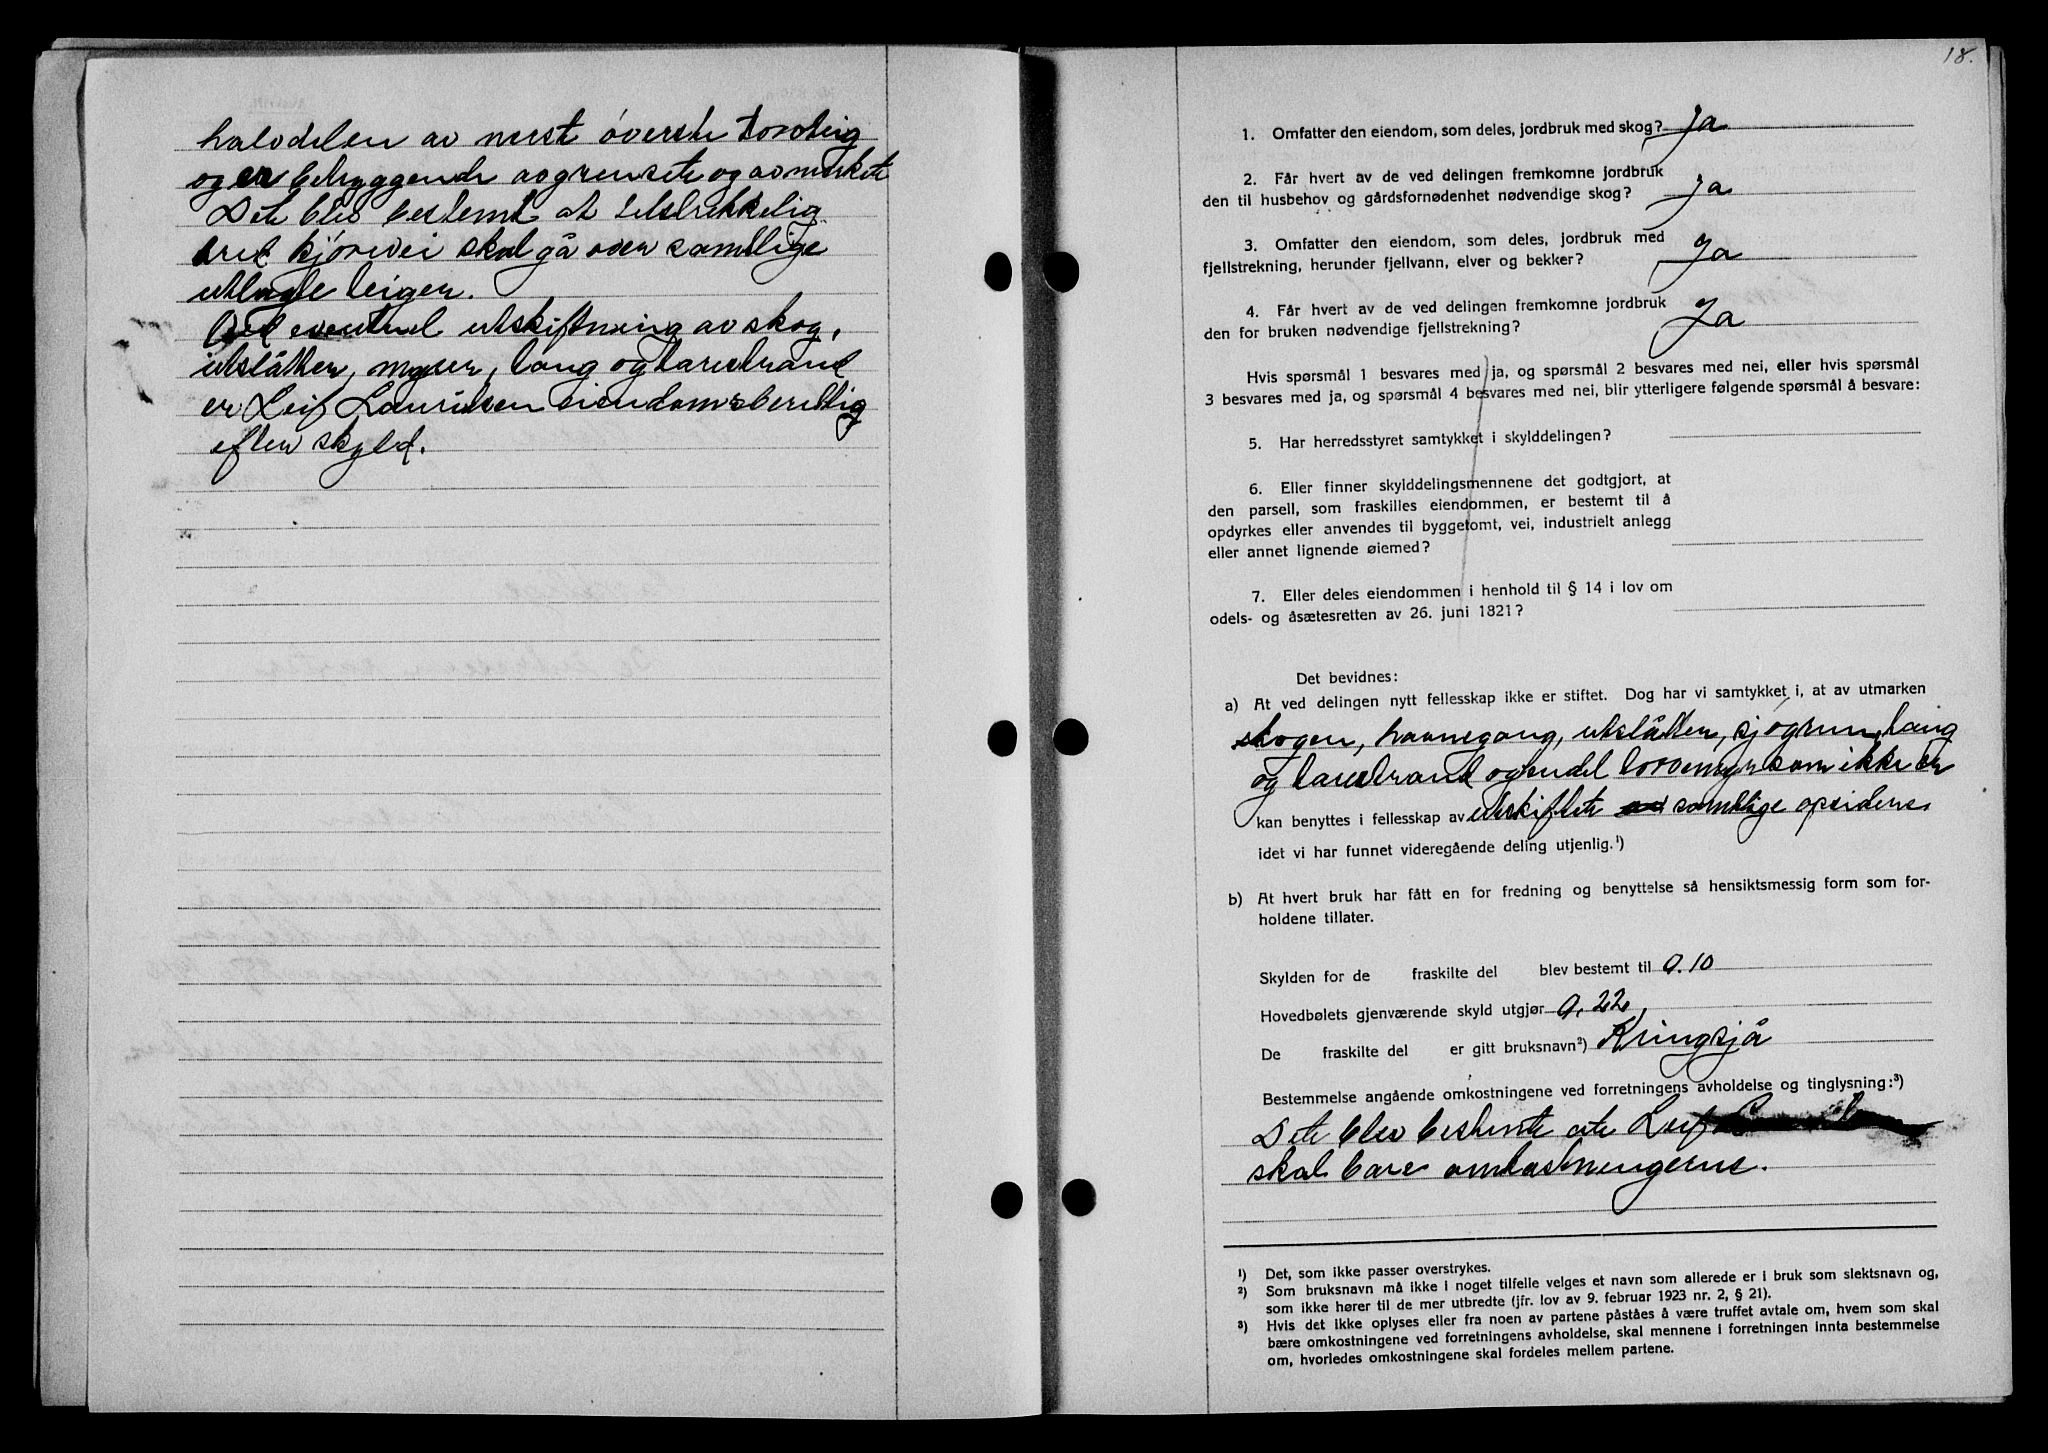 halvdelen av nerst øverste torvteig
og er betryggende avgrensete og avmerkete
Dete blev bestemt at tilstrekkelig
bred kjørevei skal gå over samtlige
utlagte teiger.
Ved eventuel utskiftning av skog,
utslåtter, myrer, tang og tarestrand
er Leif Lauritsen eiendomsberettig
efter skyld.
18.
1. Omfatter den eiendom, som deles, jordbruk med skog? Ja
2. Får hvert av de ved delingen fremkomne jordbruk
den til husbehov og gårdsfornødenhet nødvendige skog? Ja
3. Omfatter den eiendom, som deles, jordbruk med
fjellstrekning, herunder fjellvann, elver og bekker? Ja
4. Får hvert av de ved delingen fremkomne jordbruk
den for bruken nødvendige fjellstrekning? Ja
Hvis spørsmål 1 besvares med ja, og spørsmål 2 besvares med nei, eller hvis spørsmål
3 besvares med ja, og spørsmål 4 besvares med nei, blir ytterligere følgende spørsmål å besvare:
5. Har herredsstyret samtykket i skylddelingen?
6. Eller finner skylddelingsmennene det godtgjort, at
den parsell, som fraskilles eiendommen, er bestemt til å
opdyrkes eller anvendes til byggetomt, vei, industrielt anlegg
eller annet lignende øiemed?
7. Eller deles eiendommen i henhold til § 14 i lov om
odels- og åsætesretten av 26. juni 1821?
Det bevidnes:
a) At ved delingen nytt fellesskap ikke er stiftet. Dog har vi samtykket i, at av utmarken
skogen, havnegang, utslåtter, sjøgrunn, tang
og tarestrand og endel torvemyr som ikke er
kan benyttes i fellesskap av utskiftete samtlige opsidere
idet vi har funnet videregående deling utjenlig.¹)
b) At hvert bruk har fått en for fredning og benyttelse så hensiktsmessig form som for-
holdene tillater.
Skylden for de fraskilte del blev bestemt til 0.10
Hovedbølets gjenværende skyld utgjør 0,22
De fraskilte del er gitt bruksnavn²) Kringsjå
Bestemmelse angående omkostningene ved forretningens avholdelse og tinglysning:³)
Dete blev bestemte ate Leif
skal bære omkostningerne.
¹) Det, som ikke passer overstrykes.
²) Som bruksnavn må ikke i noget tilfelle velges et navn som allerede er i bruk som slektsnavn og,
som ikke hører til de mer utbredte (jfr. lov av 9. februar 1923 nr. 2, § 21).
³) Hvis det ikke oplyses eller fra noen av partene påståes å være truffet avtale om, hvem som skal
bære omkostningene ved forretningens avholdelse, skal mennene i forretningen innta bestemmelse
om, hvorledes omkostningene skal fordeles mellem partene.